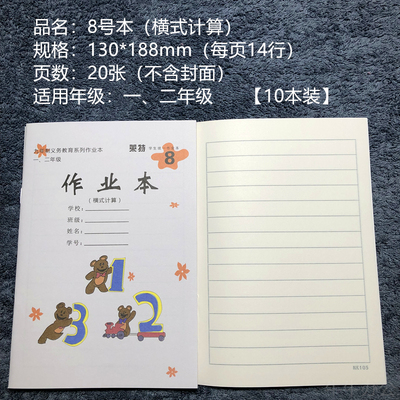 品名：8号本（横式计算）
规格：130*188mm（每页14行）
页数：20张（不含封面）
适用年级：一、二年级 【10本装】
莱特
8
义务教育系列作业本
一、二年级
作业本
（横式计算）
学校：
班级：
姓名：
学号：
1
3
2